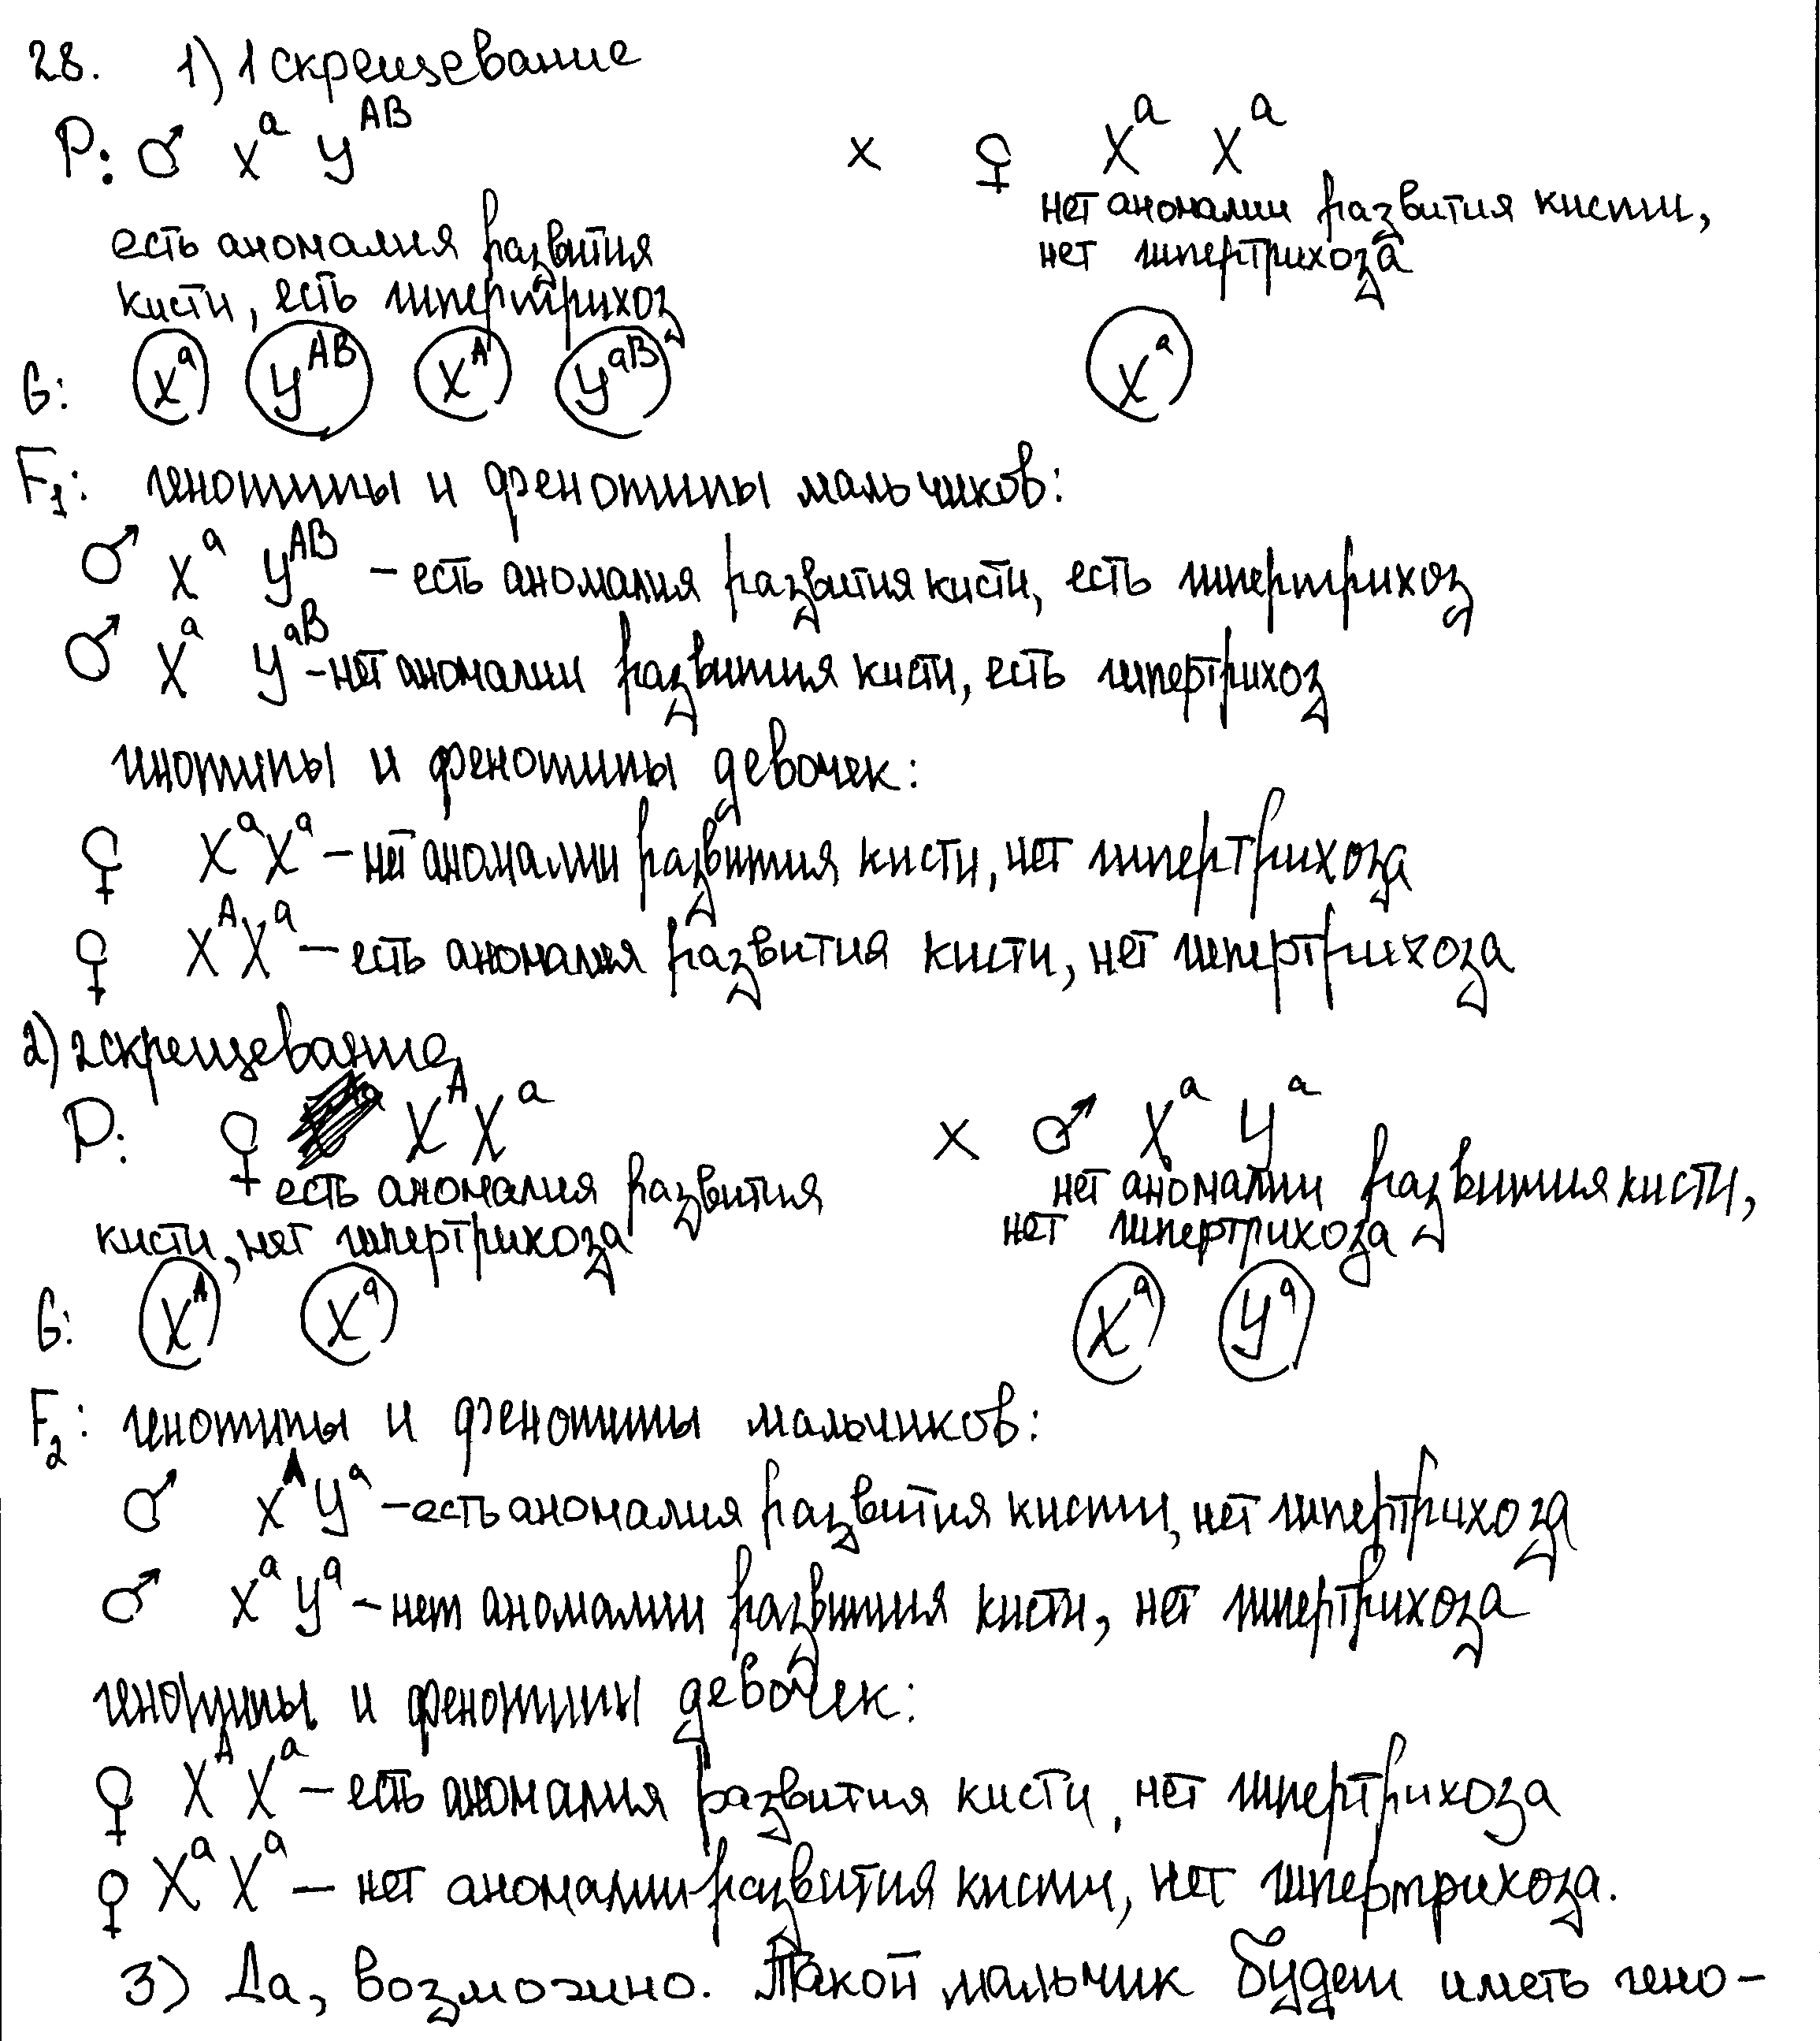 28. 1) 1 скрещевание
P: ♂ X^a Y^AB x ♀ X^a X^a
есть аномалия развития нет аномалии развития кисти,
кисти, есть гипертрихоз нет гипертрихоза
G: X^a Y^AB X^A Y^aB X^a
F1: генотипы и фенотипы мальчиков:
♂ X^a Y^AB – есть аномалия развития кисти, есть гипертрихоз
♂ X^a Y^aB – нет аномалии развития кисти, есть гипертрихоз
гинотипы и фенотипы девочек:
♀ X^a X^a – нет аномалии развития кисти, нет гипертрихоза
♀ X^A X^a – есть аномалия развития кисти, нет гипертрихоза
2) 2 скрещевание
P: ♀ X^A X^a x ♂ X^a Y^a
есть аномалия развития нет аномалии развития кисти,
кисти, нет гипертрихоза нет гипертрихоза
G: X^A X^a X^a Y^a
F2: генотипы и фенотипы мальчиков:
♂ X^A Y^a – есть аномалия развития кисти, нет гипертрихоза
♂ X^a Y^a – нет аномалии развития кисти, нет гипертрихоза
генотипы и фенотипы девочек:
♀ X^A X^a – есть аномалия развития кисти, нет гипертрихоза
♀ X^a X^a – нет аномалии развития кисти, нет гипертрихоза.
3) Да, возможно. Такой мальчик будет иметь гено-